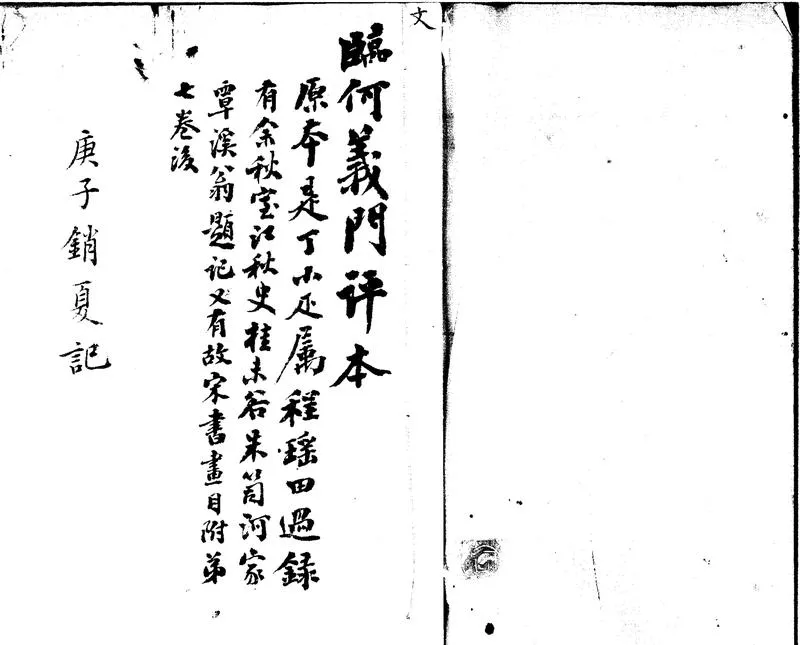 文
臨何義門評本
原本是丁小疋属程瑤田過録
有余秋室江秋史桂未谷朱笥河家
覃溪翁題記又有故宋書畫目附弟
七卷後
庚子銷夏記